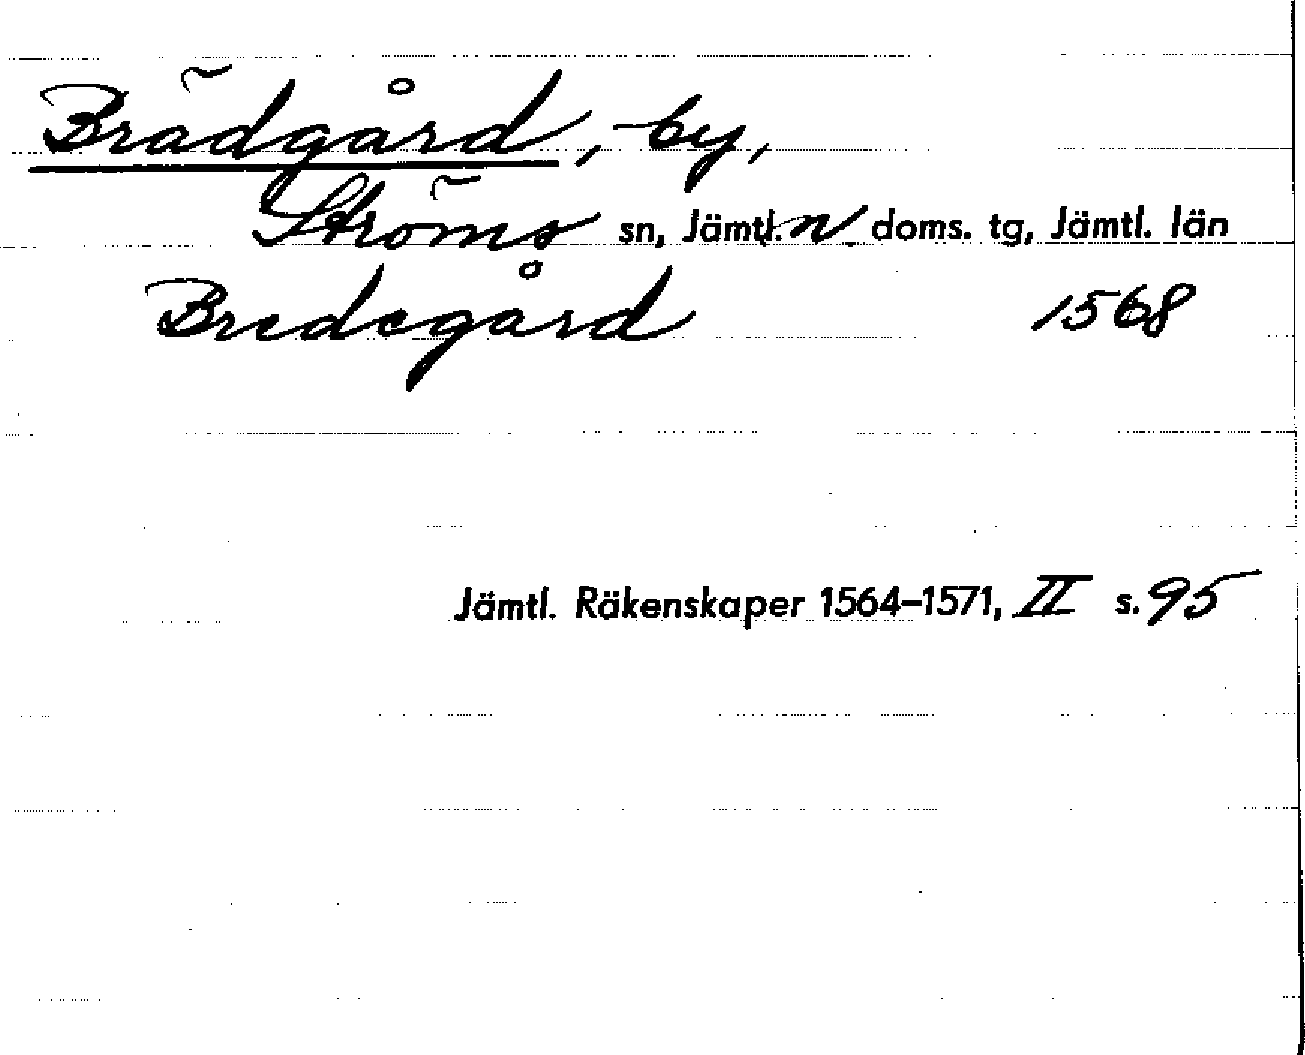 Brädgård, by,
Ströms sn, Jämtl. n doms. tg, Jämtl. län
Bredegård 1568
Jämtl. Räkenskaper 1564–1571, II s. 95